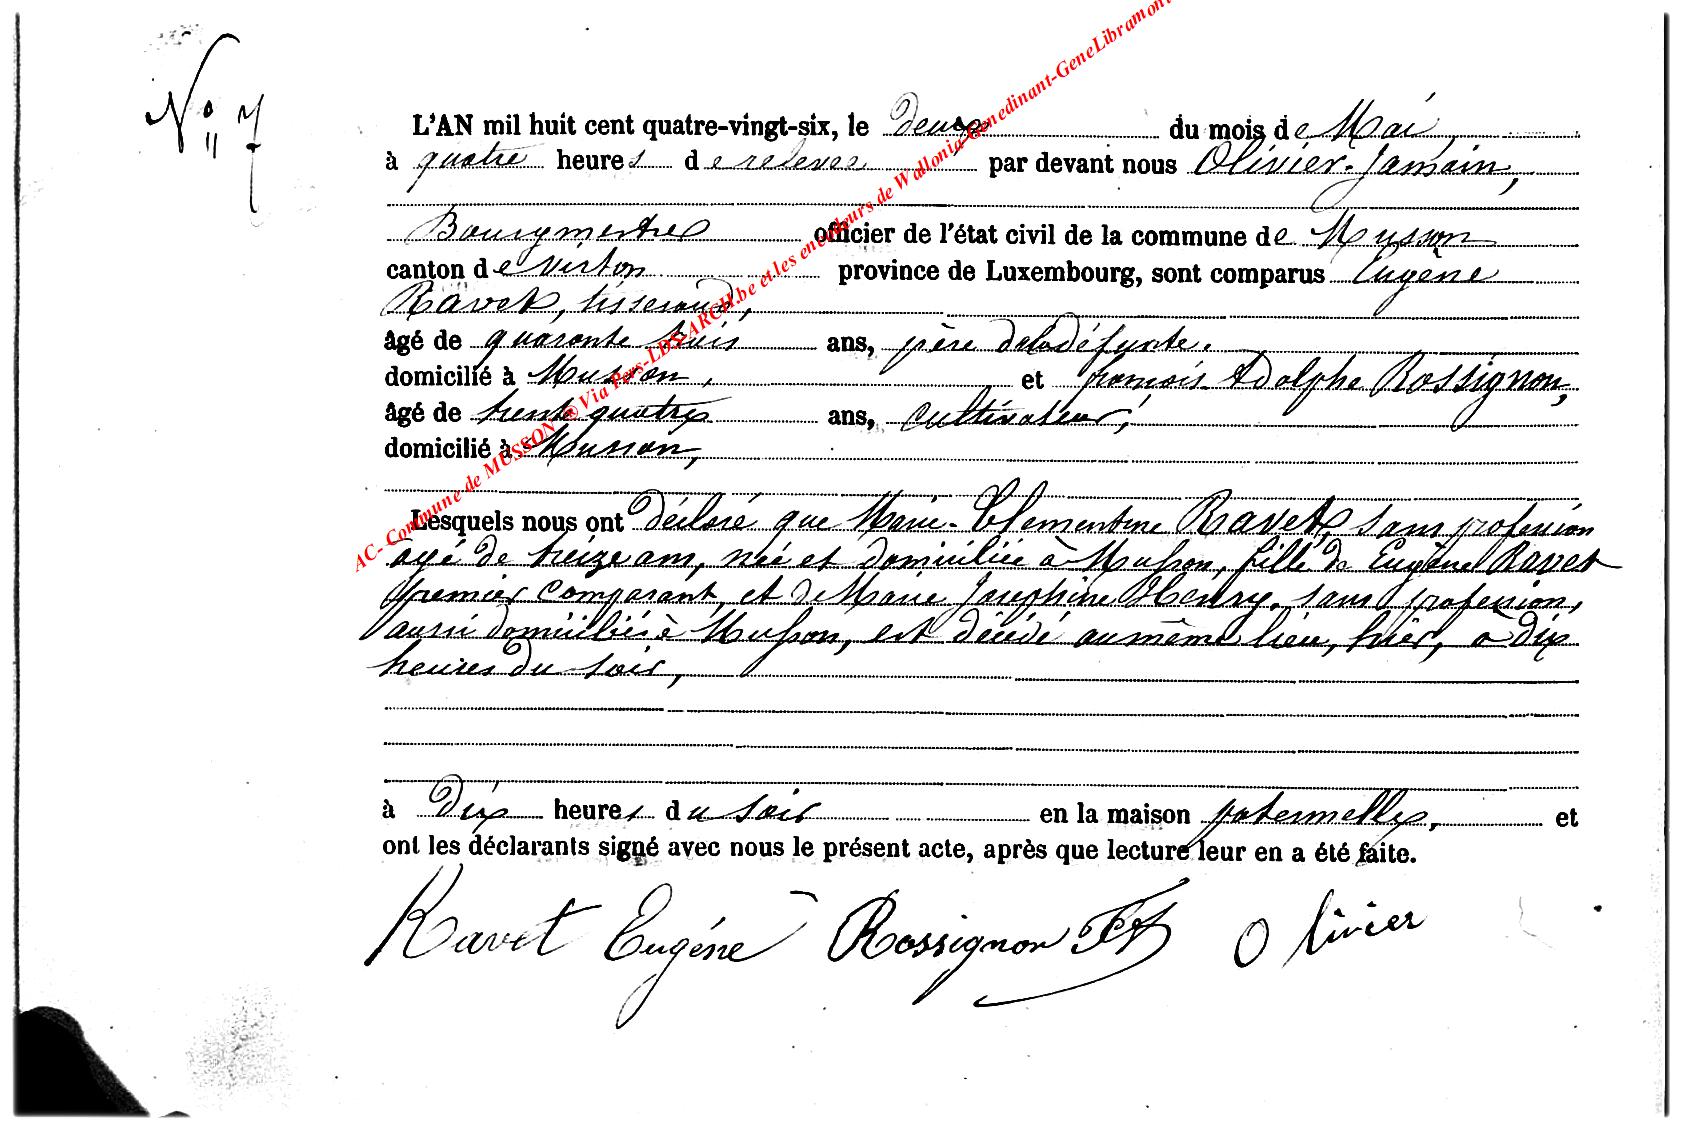 N° 7
L'AN mil huit cent quatre-vingt-six, le deux du mois de Mai,
à quatre heures de relevée par devant nous Olivier-Jamain,
Bourgmestre officier de l'état civil de la commune de Musson
canton de Virton province de Luxembourg, sont comparus Eugène
Ravet, tisserand,
âgé de quarante trois ans, père de la défunte.
domicilié à Musson, et françois Adolphe Rossignon,
âgé de trente quatre ans, cultivateur,
domicilié à Musson,
Lesquels nous ont déclaré que Marie-Clementine Ravet, sans profession
agé de treize ans, née et domiciliée à Musson, fille de Eugène Ravet
premier comparant, et de Marie Josephine Henry, sans profession,
aussi domiciliés à Musson, est décédé au même lieu, hier, à dix
heures du soir,
à Dix heures du soir en la maison paternelle, et
ont les déclarants signé avec nous le présent acte, après que lecture leur en a été faite.
Ravet Eugéne Rossignon FA Olivier
AC- Commune de MUSSON ® Via Pers-LDS-ARCH.be et les encodeurs de Wallonia-Genedinant-GeneLibramon